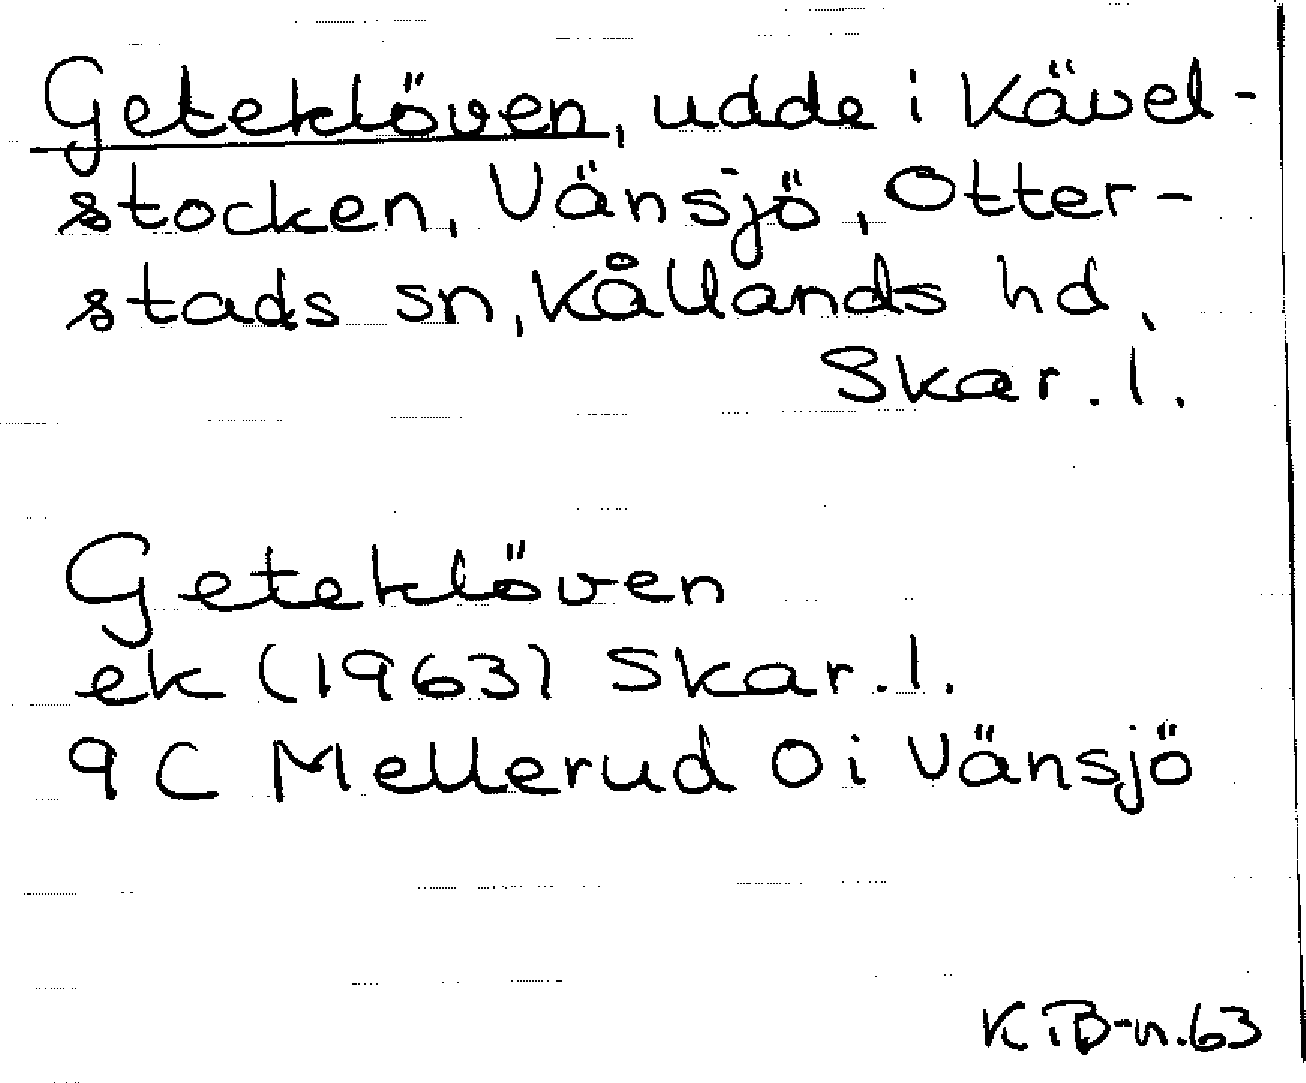 Geteklöven, udde i Kävel-
stocken, Vänsjö, Otter-
stads sn, Kållands hd,
Skar. l.
Geteklöven
ek (1963) Skar. l.
9 C Mellerud Ö i Vänsjö
KTB-n.63